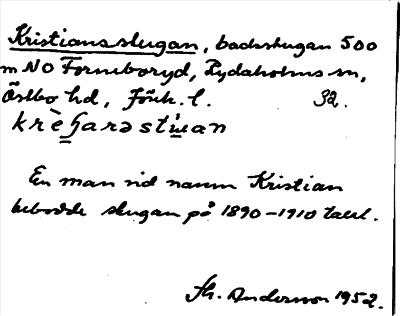 Kristiansstugan, backstugan 500
m NO Forneboryd, Rydaholms sn,
Östbo hd, Jönk. l. 32.
En man vid namn Kristian
bebodde stugan på 1890-1910 talet.
Th. Anderson 1952.